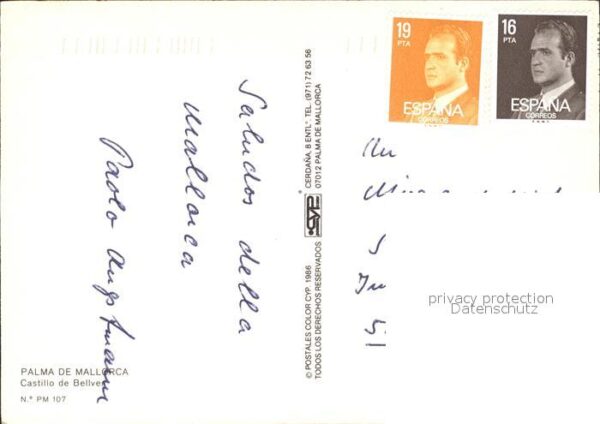 19
PTA
ESPAÑA
CORREOS
16
PTA
ESPAÑA
CORREOS
Saludos della
Mallorca
Paolo
An
CERDAÑA, 8 ENTL° TEL. (971) 72 63 56
07012 PALMA DE MALLORCA
CYP
© POSTALES COLOR CYP, 1986
TODOS LOS DERECHOS RESERVADOS
privacy protection
Datenschutz
PALMA DE MALLORCA
Castillo de Bellver
N.° PM 107